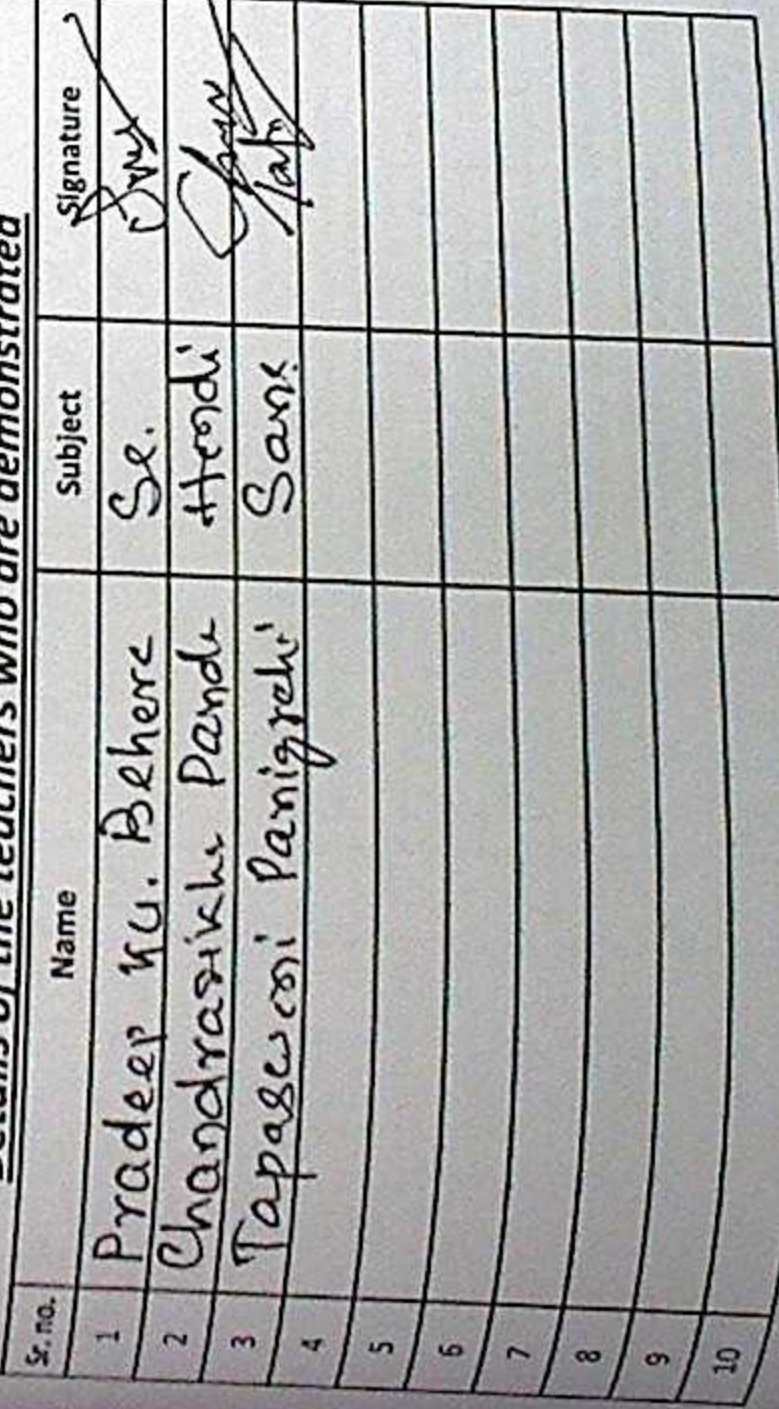 Details of the teachers who are demonstrated
Sr. no. Name Subject Signature
1 Pradeep Ku. Behera Sc.
2 Chandrasikha Panda Hindi
3 Tapaswini Panigrahi Sans.
4
5
6
7
8
9
10